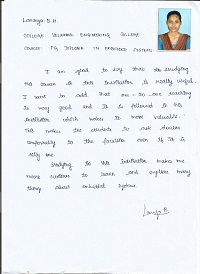 Lavanya. B. H.
COLLEGE: VELAMMAL ENGINEERING COLLEGE
COURSE: PG DIPLOMA IN EMBEDDED SYSTEMS
I am glad to say that the studying
this course in this Institution is really useful.
I want to add that one-to-one teaching
is very good and it is followed in this
Institution which makes it more valuable.
This makes the students to ask doubts
comfortably to the faculties even if it is
silly one.
Studying in this Institution makes me
more curious to learn and explore many
things about embedded system.